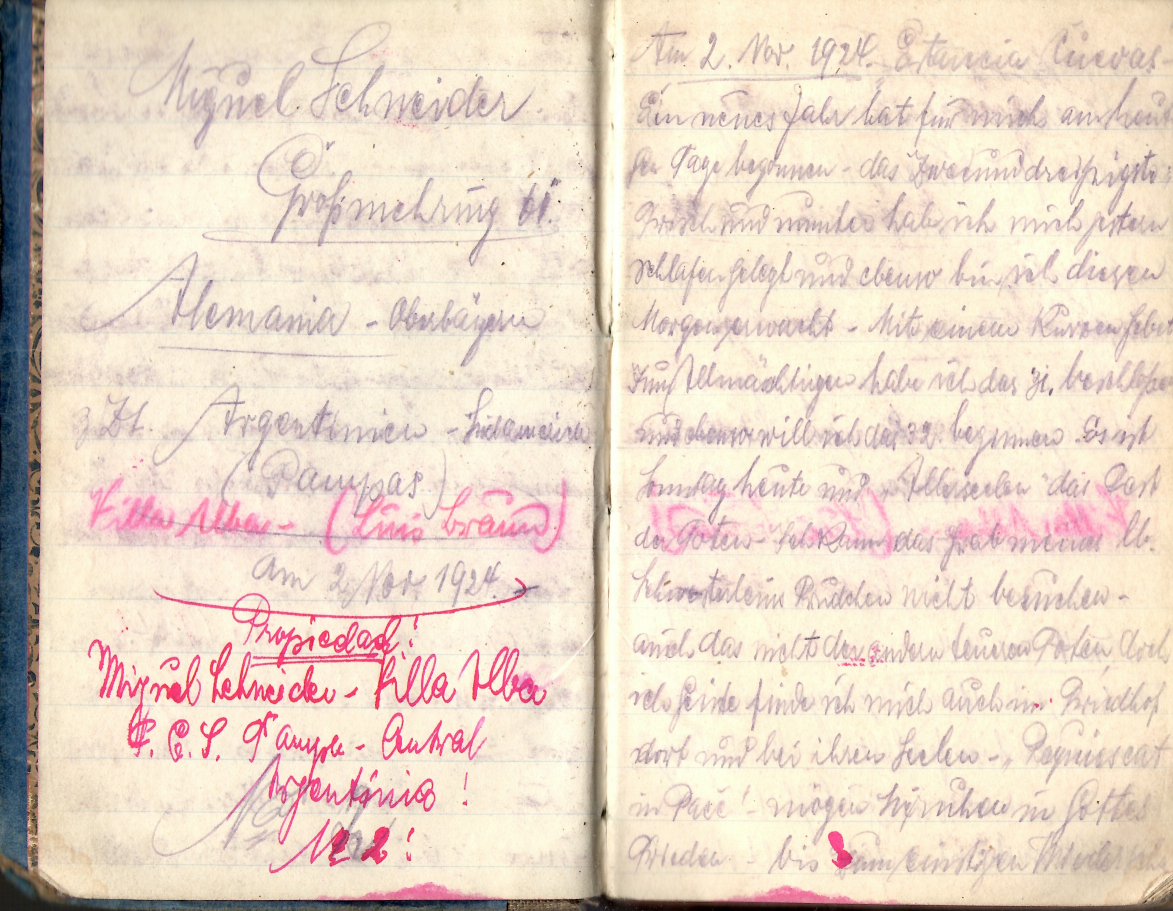 Miguel Schneider.
Großmehring
Alemania - Oberbayern
z. Zt. Argentinien - Südamerika
(Pampas)
Villa Alba - (Luis Braun)
Am 2 Nov. 1924.
Propiedad!
Miguel Schneider - Villa Alba
F. C. S. Pampa - Central
Argentinia!
No 2!
Am 2. Nov. 1924. Estancia Cuevas -
Ein neues Jahr hat für mich am heuti
gen Tage begonnen - das Zweiunddreißigste
Frisch und munter habe ich mich gestern
schlafen gelegt und ebenso bin ich diesen
Morgen erwacht - Mit einem kurzen Gebet
zum Allmächtigen habe ich das 31. beschlossen
und ebenso will ich das 32. beginnen. Es ist
Sonntag heute und „Allerseelen" das Fest
der Toten - Ich kann das Grab meines lb.
nicht besuchen -
auch das nicht der andern teuren Toten, doch
im finde ich mich auch im Friedhof
dort und bei ihren Seelen - „Requiescat
in Pace"! - mögen sie ruhen in Gottes
Frieden - bis zum einstigen